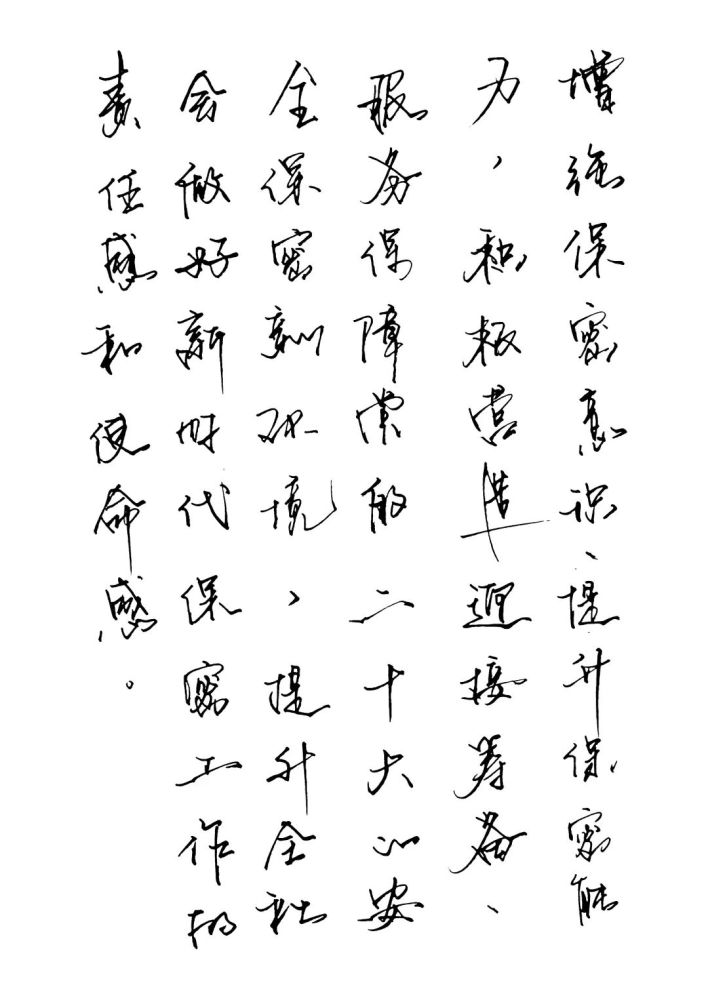 增强保密意识、提升保密能
力,积极营造迎接筹备、
服务保障党的二十大的安
全保密环境,提升全社
会做好新时代保密工作的
责任感和使命感。